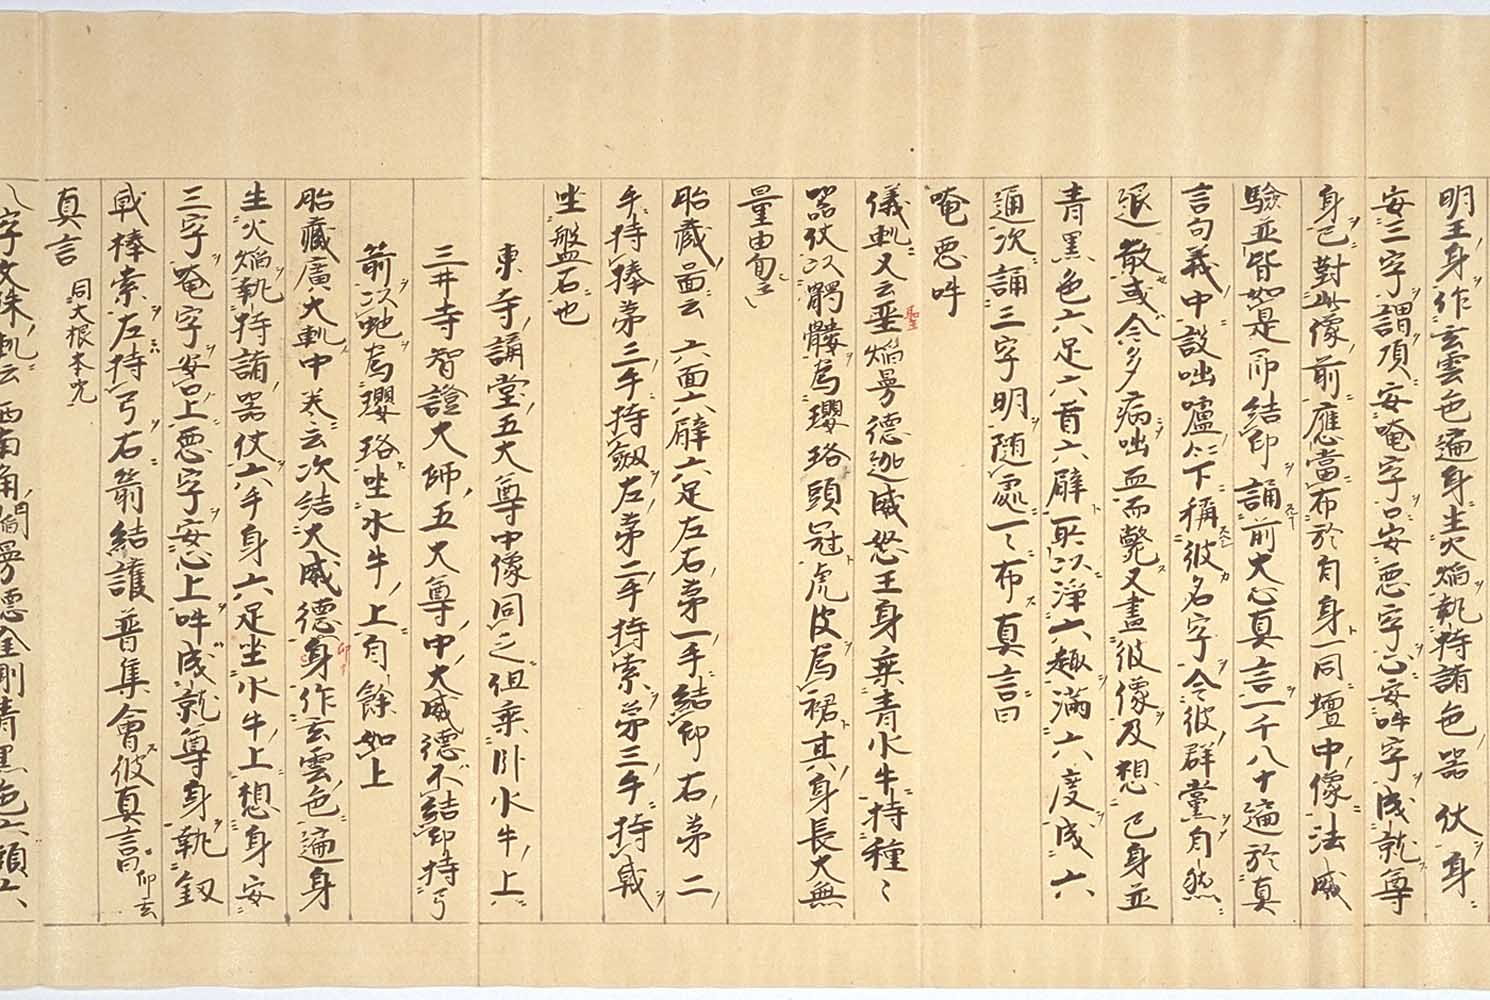 明王身作玄雲色遍身生火焔執持諸色器仗身
安三字謂頂安唵字口安悪字心安吽字成就尊
身已對此像前應當布於自身一同壇中像法威
驗並皆如是而結印誦前大心真言一千八十遍於真
言句義中設咄嚧〻下稱彼名字令彼群黨自然
退散或令多病咄血而斃又畫彼像及想己身並
青黒色六足六首六臂所以淨六趣満六度成六
通次誦三字明随處一〻布真言曰
唵悪吽
儀軌又云聖焔曼德迦威怒王身乗青水牛持種〻
器仗以髑髏為瓔珞頭冠虎皮為裙其身長大無
量由旬云〻
胎蔵啚云六面六臂六足左右第一手結印右第二
手持捧第三手持劔左第二手持索第三手持戟
坐盤石也
東寺講堂五大尊中像同之但乗臥水牛上
三井寺智證大師五大尊中大威德不結印持弓
箭以虵為瓔珞坐水牛上自餘如上
胎藏廣大軌中巻云次結大威德身印作玄雲色遍身
生火焔執持諸器仗六手身六足坐水牛上想身安
三字唵字安口上悪字安心上吽成就尊身執釼
戟棒索左持弓右箭結護普集會彼真言印云
真言 同大根本咒
八字文殊軌云西南角門焔曼德金剛青黒色六頭六